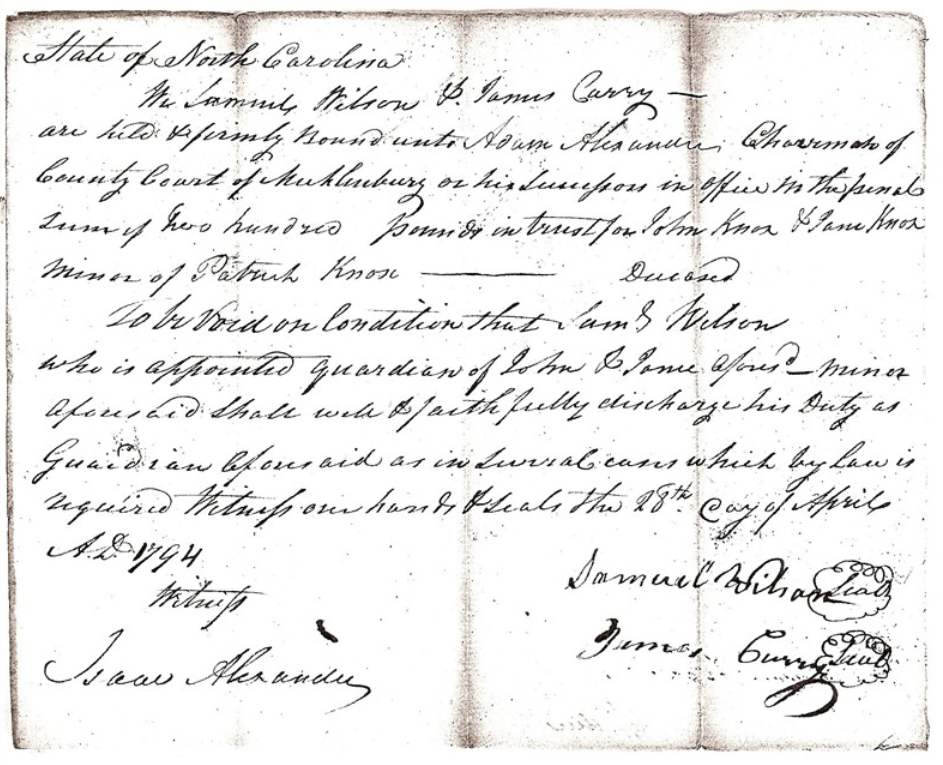 State of North Carolina
We Samuel Wilson & James Curry —
are held & firmly Bound unto Adam Alexander, Chairman of
County Court of Mecklenburg or his Successors in office in the penal
Sum of Two hundred Pounds in trust for John Knox & Jane Knox
Minor of Patrick Knox ——— Deceased
To be Void on Condition that Saml Wilson
who is appointed guardian of John & Jane afores'd — minor
aforesaid Shall well & faithfully discharge his Duty as
Guardian aforesaid as in Several cases which by law is
required Witness our hands & Seals the 28th Day of April
AD 1794
Witness
Samuel Wilson Seal
James Curry Seal
Isaac Alexander